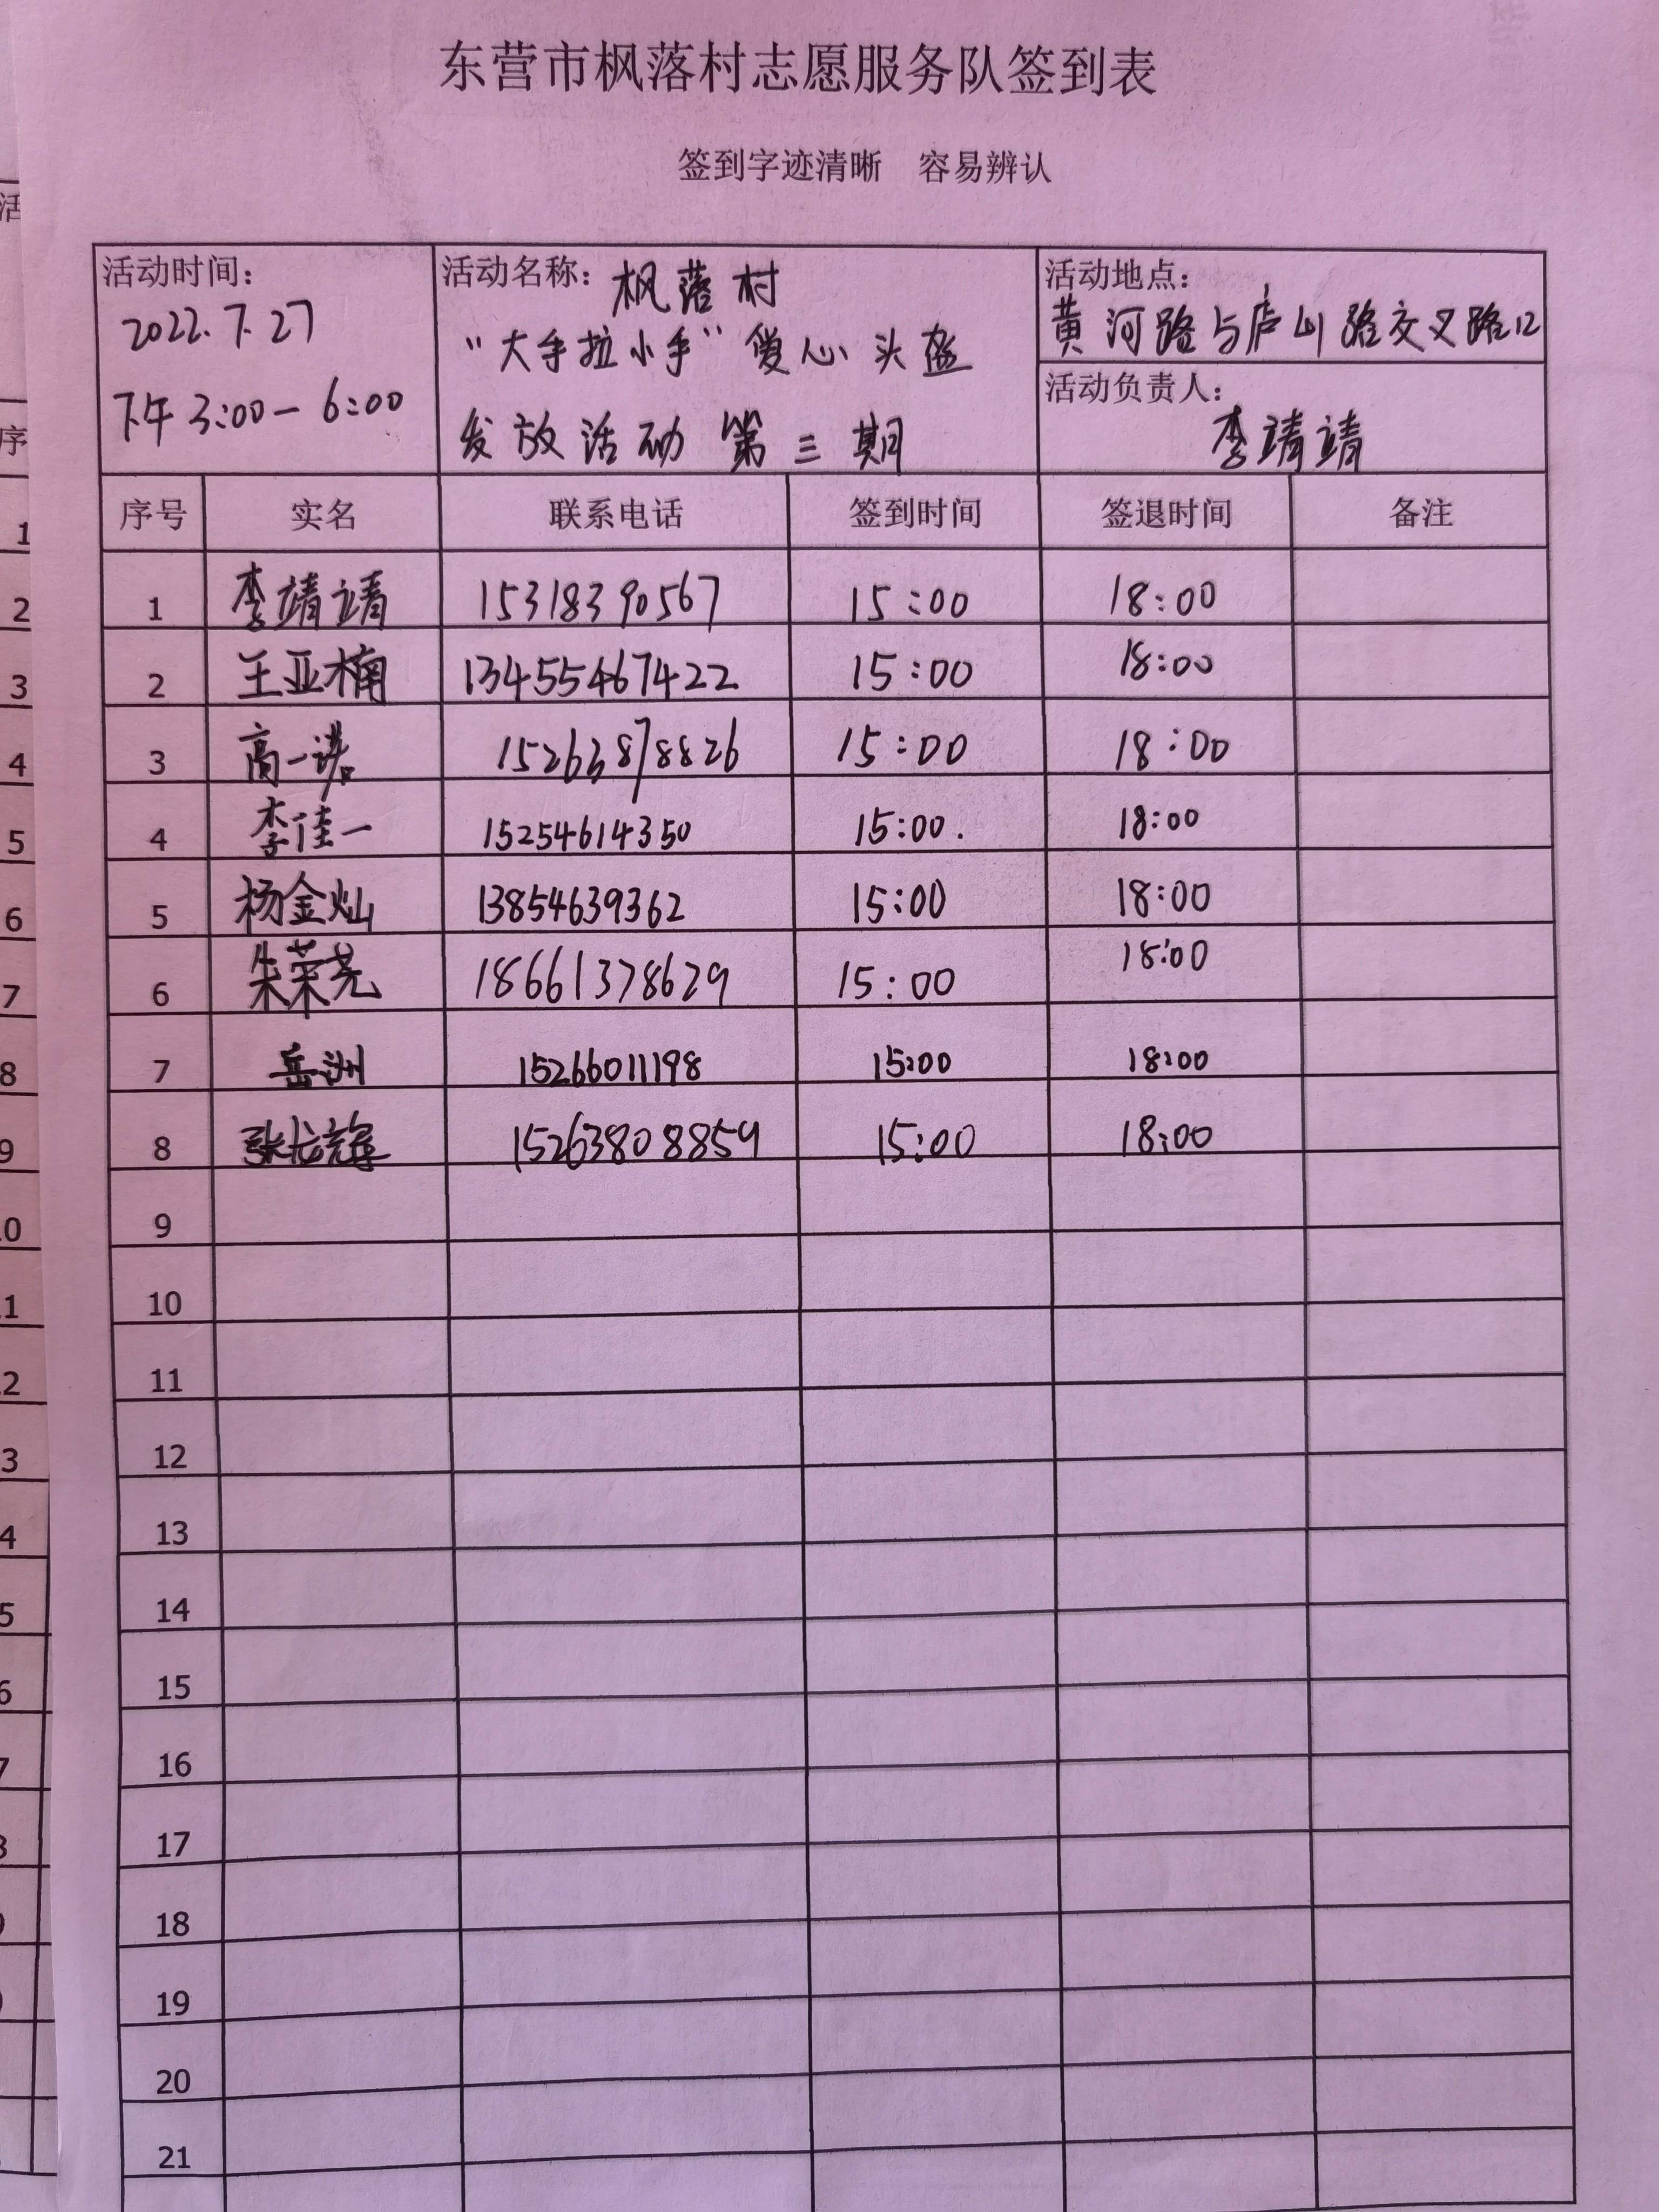 东营市枫落村志愿服务队签到表
签到字迹清晰 容易辨认
活动时间：
2022.7.27
下午 3:00－6:00
活动名称：枫落村
“大手拉小手”爱心头盔
发放活动 第三期
活动地点：
黄河路与庐山路交叉路口
活动负责人：
李靖靖
序号 实名 联系电话 签到时间 签退时间 备注
1 李靖靖 15318390567 15:00 18:00
2 王亚楠 13455467422 15:00 18:00
3 高一诺 15263878826 15:00 18:00
4 李佳一 15254614350 15:00. 18:00
5 杨金灿 13854639362 15:00 18:00
6 朱荣尧 18661378629 15:00 18:00
7 岳洲 15266011198 15:00 18:00
8 张龙耀 15263808859 15:00 18:00
9
10
11
12
13
14
15
16
17
18
19
20
21